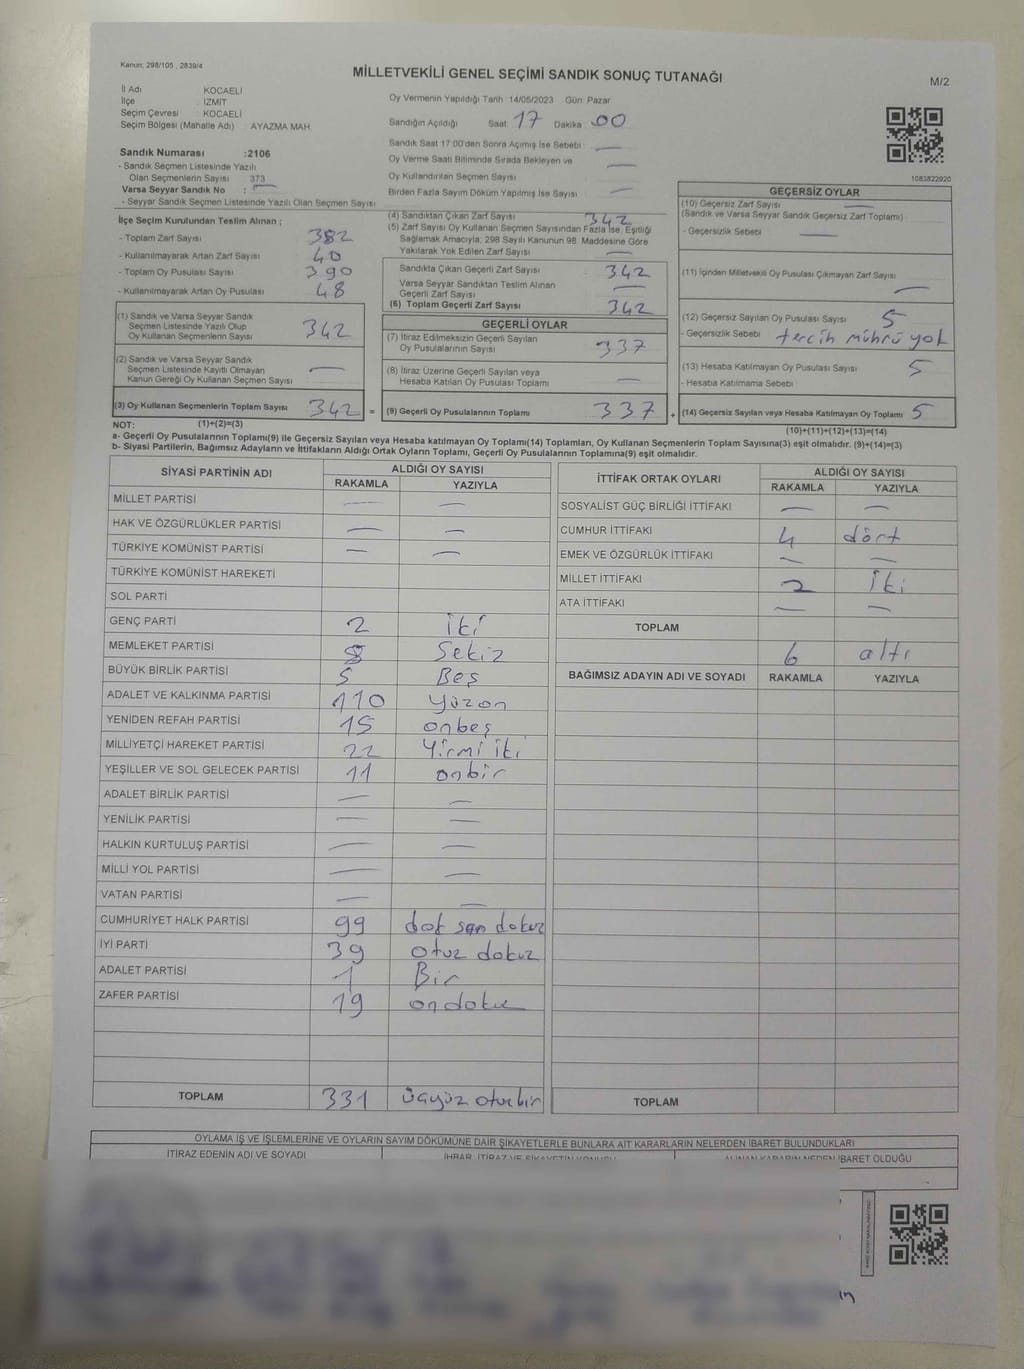 Kanun: 298/105 , 2839/4
MİLLETVEKİLİ GENEL SEÇİMİ SANDIK SONUÇ TUTANAĞI
M/2
İl Adı : KOCAELİ
İlçe : İZMİT
Seçim Çevresi : KOCAELİ
Seçim Bölgesi (Mahalle Adı) : AYAZMA MAH.
Oy Vermenin Yapıldığı Tarih 14/05/2023 Gün: Pazar
Sandığın Açıldığı Saat: 17 Dakika 00
Sandık Saat 17:00'den Sonra Açımış İse Sebebi —
Oy Verme Saati Bitiminde Sırada Bekleyen ve
Oy Kullandırılan Seçmen Sayısı —
Birden Fazla Sayım Döküm Yapılmış İse Sayısı —
1083822920
Sandık Numarası :2106
- Sandık Seçmen Listesinde Yazılı
Olan Seçmenlerin Sayısı 373
Varsa Seyyar Sandık No : —
- Seyyar Sandık Seçmen Listesinde Yazılı Olan Seçmen Sayısı
İlçe Seçim Kurulundan Teslim Alınan ;
- Toplam Zarf Sayısı 382
- Kullanılmayarak Artan Zarf Sayısı 40
- Toplam Oy Pusulası Sayısı 390
- Kullanılmayarak Artan Oy Pusulası 48
(1) Sandık ve Varsa Seyyar Sandık
Seçmen Listesinde Yazılı Olup
Oy Kullanan Seçmenlerin Sayısı 342
(2) Sandık ve Varsa Seyyar Sandık
Seçmen Listesinde Kayıtlı Olmayan
Kanun Gereği Oy Kullanan Seçmen Sayısı —
(3) Oy Kullanan Seçmenlerin Toplam Sayısı 342 =
(1)+(2)=(3)
(4) Sandıktan Çıkan Zarf Sayısı 342
(5) Zarf Sayısı Oy Kullanan Seçmen Sayısından Fazla İse, Eşitliği
Sağlamak Amacıyla, 298 Sayılı Kanunun 98. Maddesine Göre
Yakılarak Yok Edilen Zarf Sayısı —
Sandıkta Çıkan Geçerli Zarf Sayısı 342
Varsa Seyyar Sandıktan Teslim Alınan
Geçerli Zarf Sayısı —
(6) Toplam Geçerli Zarf Sayısı 342
GEÇERLİ OYLAR
(7) İtiraz Edilmeksizin Geçerli Sayılan
Oy Pusulalarının Sayısı 337
(8) İtiraz Üzerine Geçerli Sayılan veya
Hesaba Katılan Oy Pusulası Toplamı —
(9) Geçerli Oy Pusulalarının Toplamı 337 +
GEÇERSİZ OYLAR
(10) Geçersiz Zarf Sayısı —
(Sandık ve Varsa Seyyar Sandık Geçersiz Zarf Toplamı)
- Geçersizlik Sebebi —
(11) İçinden Milletvekili Oy Pusulası Çıkmayan Zarf Sayısı —
(12) Geçersiz Sayılan Oy Pusulası Sayısı 5
- Geçersizlik Sebebi tercih mührü yok
(13) Hesaba Katılmayan Oy Pusulası Sayısı 5
- Hesaba Katılmama Sebebi
(14) Geçersiz Sayılan veya Hesaba Katılmayan Oy Toplamı 5
(10)+(11)+(12)+(13)=(14)
NOT:
a- Geçerli Oy Pusulalarının Toplamı(9) ile Geçersiz Sayılan veya Hesaba katılmayan Oy Toplamı(14) Toplamları, Oy Kullanan Seçmenlerin Toplam Sayısına(3) eşit olmalıdır. (9)+(14)=(3)
b- Siyasi Partilerin, Bağımsız Adayların ve İttifakların Aldığı Ortak Oyların Toplamı, Geçerli Oy Pusulalarının Toplamına(9) eşit olmalıdır.
SİYASİ PARTİNİN ADI ALDIĞI OY SAYISI
RAKAMLA YAZIYLA
MİLLET PARTİSİ — —
HAK VE ÖZGÜRLÜKLER PARTİSİ — —
TÜRKİYE KOMÜNİST PARTİSİ — —
TÜRKİYE KOMÜNİST HAREKETİ
SOL PARTİ
GENÇ PARTİ 2 iki
MEMLEKET PARTİSİ 8 Sekiz
BÜYÜK BİRLİK PARTİSİ 5 Beş
ADALET VE KALKINMA PARTİSİ 110 Yüzon
YENİDEN REFAH PARTİSİ 15 onbeş
MİLLİYETÇİ HAREKET PARTİSİ 22 Yirmi iki
YEŞİLLER VE SOL GELECEK PARTİSİ 11 onbir
ADALET BİRLİK PARTİSİ — —
YENİLİK PARTİSİ — —
HALKIN KURTULUŞ PARTİSİ — —
MİLLİ YOL PARTİSİ — —
VATAN PARTİSİ — —
CUMHURİYET HALK PARTİSİ 99 doksan dokuz
İYİ PARTİ 39 otuz dokuz
ADALET PARTİSİ 1 Bir
ZAFER PARTİSİ 19 ondokuz
TOPLAM 331 üçyüz otuzbir
İTTİFAK ORTAK OYLARI ALDIĞI OY SAYISI
RAKAMLA YAZIYLA
SOSYALİST GÜÇ BİRLİĞİ İTTİFAKI — —
CUMHUR İTTİFAKI 4 dört
EMEK VE ÖZGÜRLÜK İTTİFAKI — —
MİLLET İTTİFAKI 2 İki
ATA İTTİFAKI — —
TOPLAM
6 altı
BAĞIMSIZ ADAYIN ADI VE SOYADI RAKAMLA YAZIYLA
TOPLAM
OYLAMA İŞ VE İŞLEMLERİNE VE OYLARIN SAYIM DÖKÜMÜNE DAİR ŞİKAYETLERLE BUNLARA AİT KARARLARIN NELERDEN İBARET BULUNDUKLARI
İTİRAZ EDENİN ADI VE SOYADI İHBAR, İTİRAZ VE ŞİKAYETİN KONUSU ALINAN KARARIN NEDEN İBARET OLDUĞU